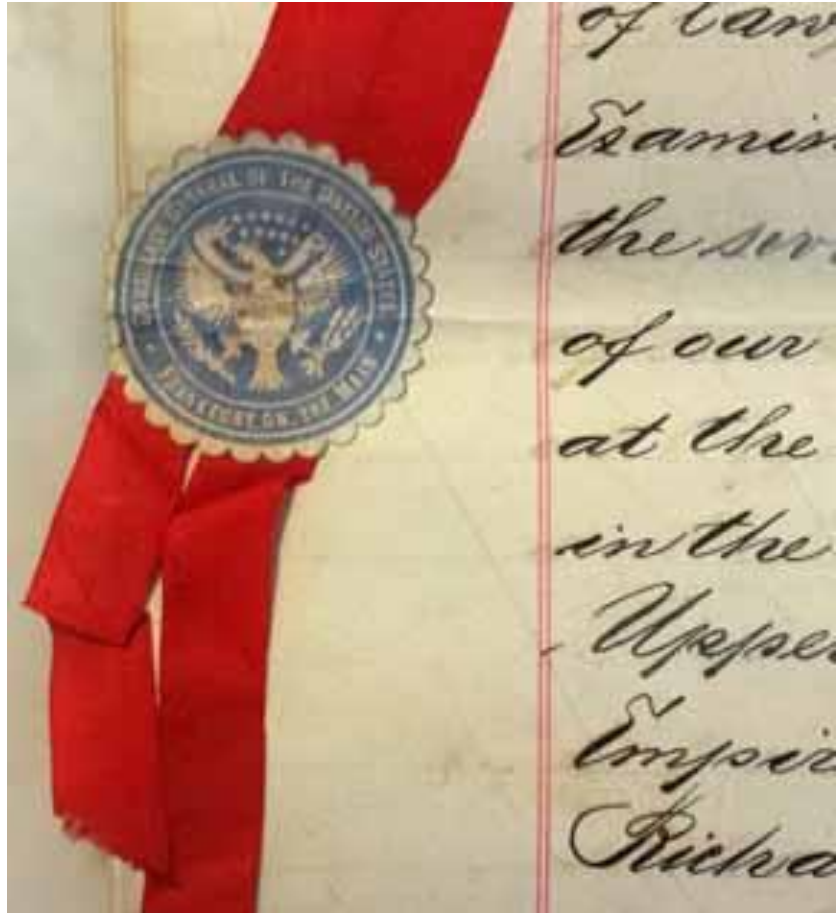 CONSULATE GENERAL OF THE UNITED STATES
FRANKFORT ON THE MAIN
of
Examin
the
of our
at the
in the
Upper
Empir
Richa